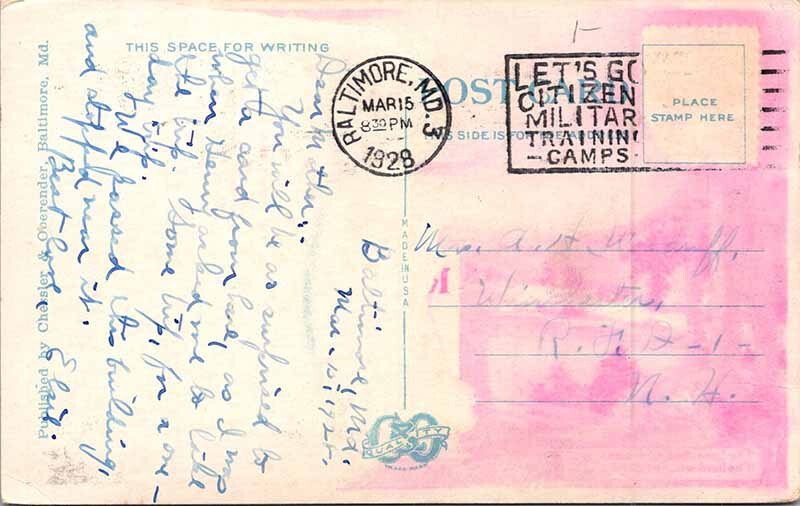 THIS SPACE FOR WRITING
POST CARD
THIS SIDE IS FOR THE ADDRESS
PLACE
STAMP HERE
BALTIMORE, MD. 3
MAR 15
8 30 PM
1928
LET'S GO
CITIZEN
MILITAR
TRAININ
-CAMPS-
Baltimore, Md.
Mar. 15, 1928.
Dear Mother:
You will be as surprised to
get a card from here, as I was
when Henry asked me to take
the trip. Some trip, for a one-
day trip.
We passed this building,
and stopped near it.
Best love. Elsie.
Mrs. A. H.
Winchester,
R. F. D. -1-
N. H.
MADE IN USA
QUALITY
TRADE MARK
Published by Chessler & Oberender, Baltimore, Md.